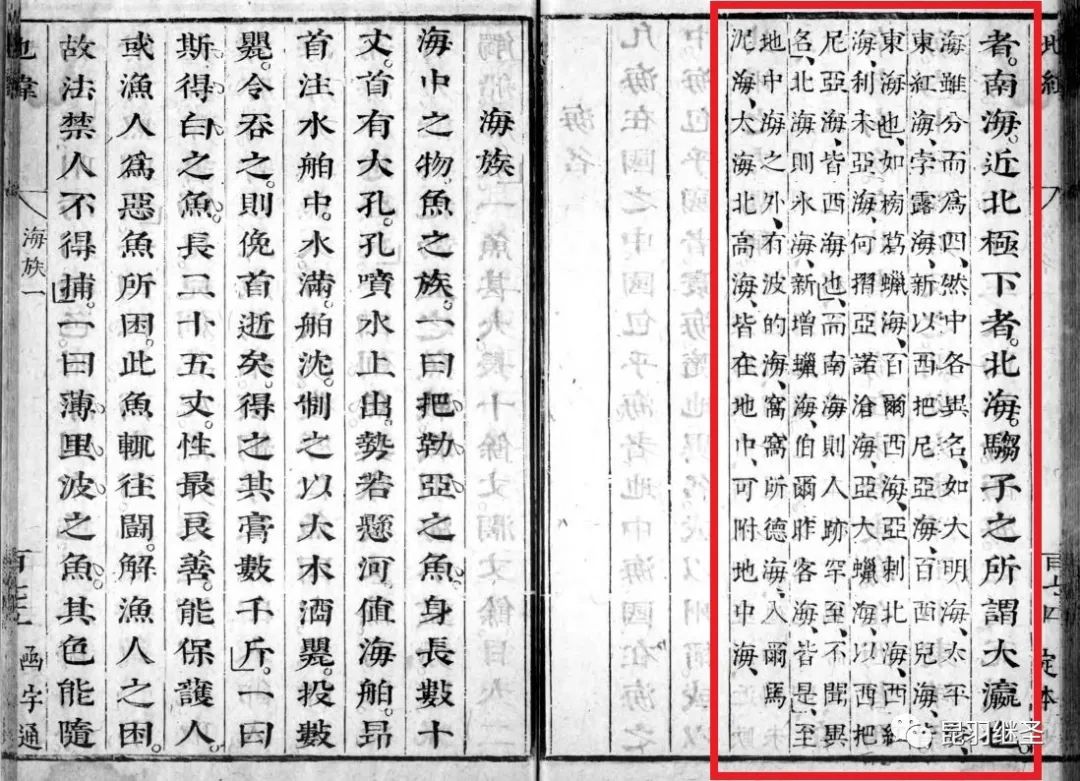 地緯
者。南海。近北極下者。北海。騶子之所謂大瀛也。
海雖分而爲四、然中各異名、如大明海、太平海、
東紅海、孛露海、新以西把尼亞海、百西兒海、皆
東海也、如榜葛蠟海、百爾西海、亞剌北海、西紅
海、利未亞海、何摺亞諾滄海、亞大蠟海、以西把
尼亞海、皆西海也、而南海則人跡罕至、不聞異
名、北海則氷海、新增蠟海、伯爾昨客海、皆是、至
地中海之外、有波的海、窩窩所德海、入爾馬
泥海、太海、北高海、皆在地中、可附地中海、
海族
海中之物魚之族。一曰把勒亞之魚。身長數十
丈。首有大孔。孔噴水上出。勢若懸河。值海舶。昂
首注水舶中。水滿。舶沈。制之以大木酒甖。投數
甖。令吞之。則俛首逝矣。得之其膏數千斤。一曰
斯得白之魚。長二十五丈。性最良善。能保護人。
或漁人爲惡魚所困。此魚輒往鬪。解漁人之困。
故法禁人不得捕。一曰薄里波之魚。其色能隨
海族一
函宇通
昆羽继圣